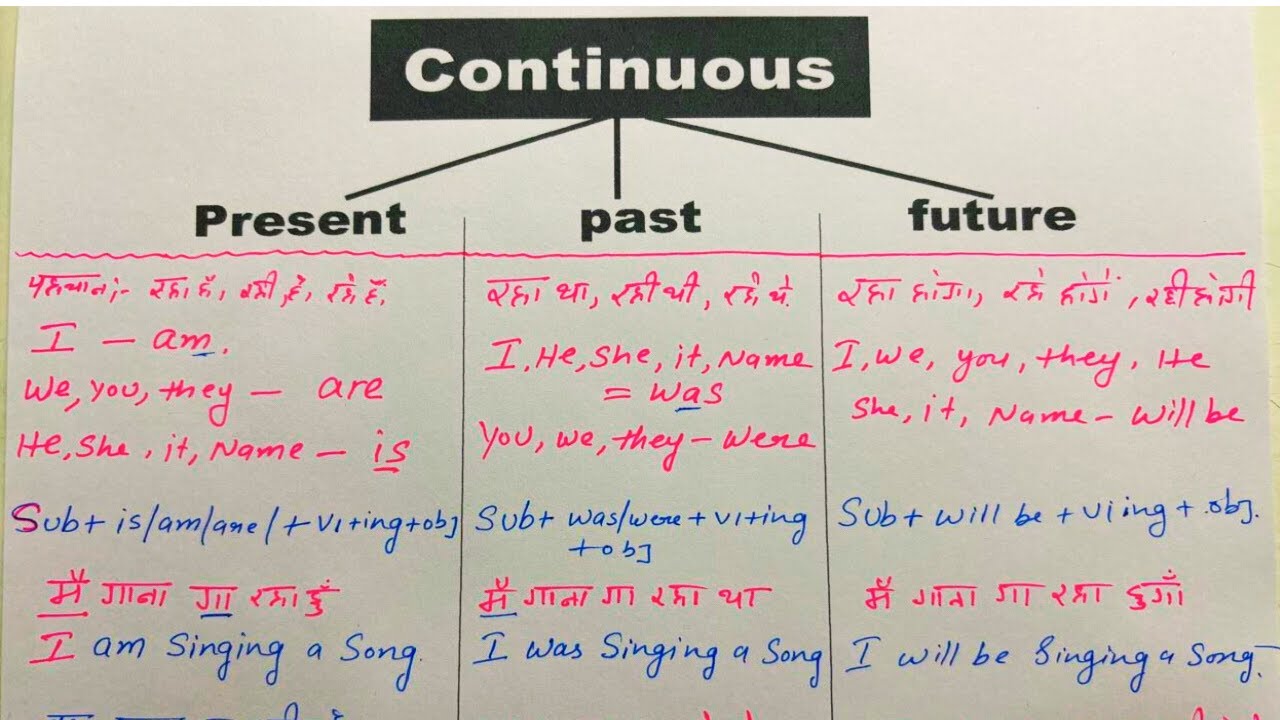 Continuous
Present
past
future
पहचान:- रहा हूँ, रही है, रहे हैं.
I – am.
We, you, they – are
He, She, it, Name – is
Sub+ is/am/are/+V1+ing+obj
मैं गाना गा रहा हूँ
I am Singing a Song.
रहा था, रही थी, रहे थे.
I, He, She, it, Name
= was
You, we, they – were
Sub+ was/were + V1+ing
+obj
मैं गाना गा रहा था
I was Singing a Song
रहा होगा, रहे होंगे, रही होगी
I, we, you, they, He
She, it, Name – will be
Sub + will be + V1 ing + obj.
मैं गाना गा रहा हुगाँ
I will be Singing a Song.